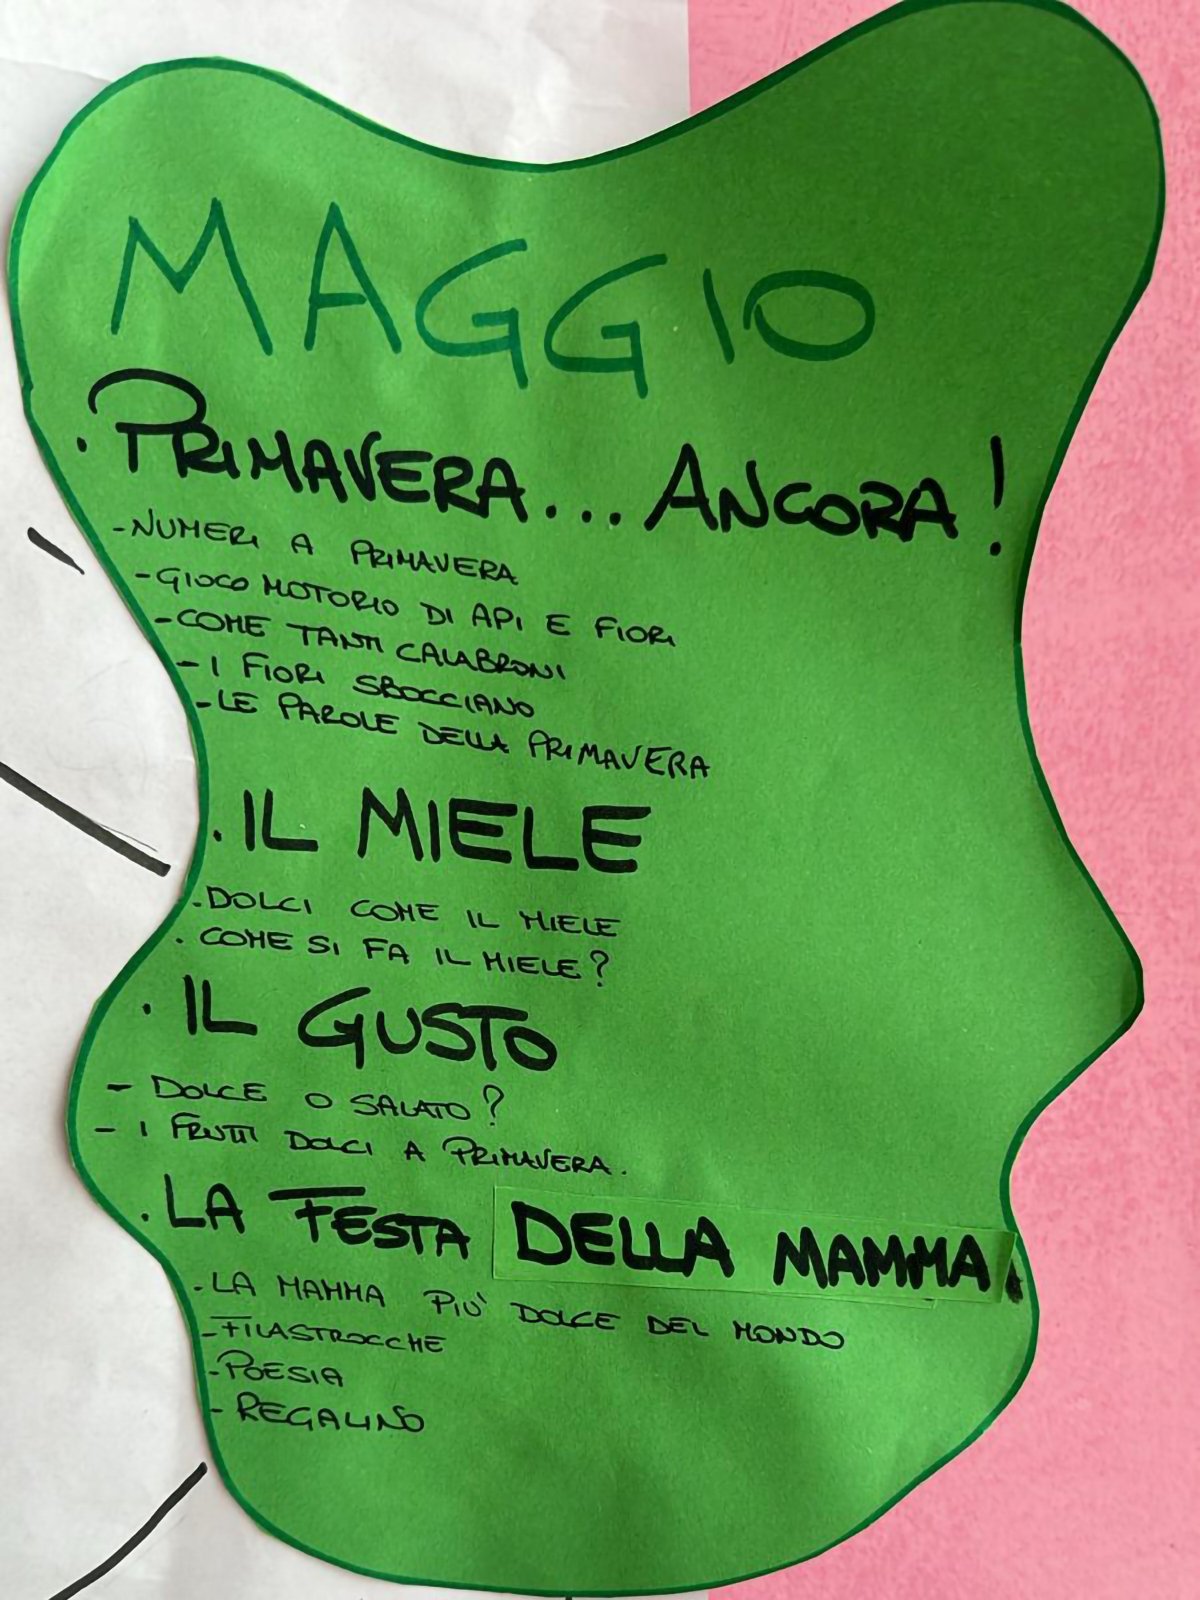 MAGGIO
. PRIMAVERA... ANCORA!
- NUMERI A PRIMAVERA
- GIOCO MOTORIO DI API E FIORI
- COME TANTI CALABRONI
- I FIORI SBOCCIANO
- LE PAROLE DELLA PRIMAVERA
. IL MIELE
. DOLCI COME IL MIELE
. COME SI FA IL MIELE?
. IL GUSTO
- DOLCE O SALATO?
- I FRUTTI DOLCI A PRIMAVERA.
. LA FESTA DELLA MAMMA.
. LA MAMMA PIÙ DOLCE DEL MONDO
- FILASTROCCHE
- POESIA
- REGALINO